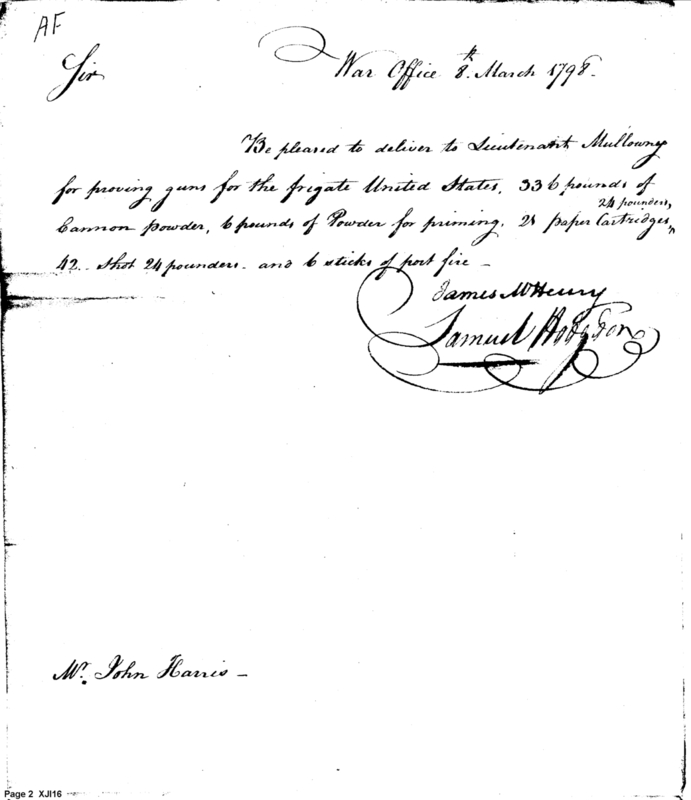 AF
War Office 8th March 1798.
Sir
Be pleased to deliver to Lieutenant Mullowny
for proving guns for the frigate United States, 336 pounds of
Cannon powder, 6 pounds of Powder for priming, 21 paper Cartridges, 24 pounders,
42.. Shot 24 pounders. and 6 sticks of port fire _
James McHenry
Samuel Hodgdon
Mr. John Harris _
Page 2 XJI16